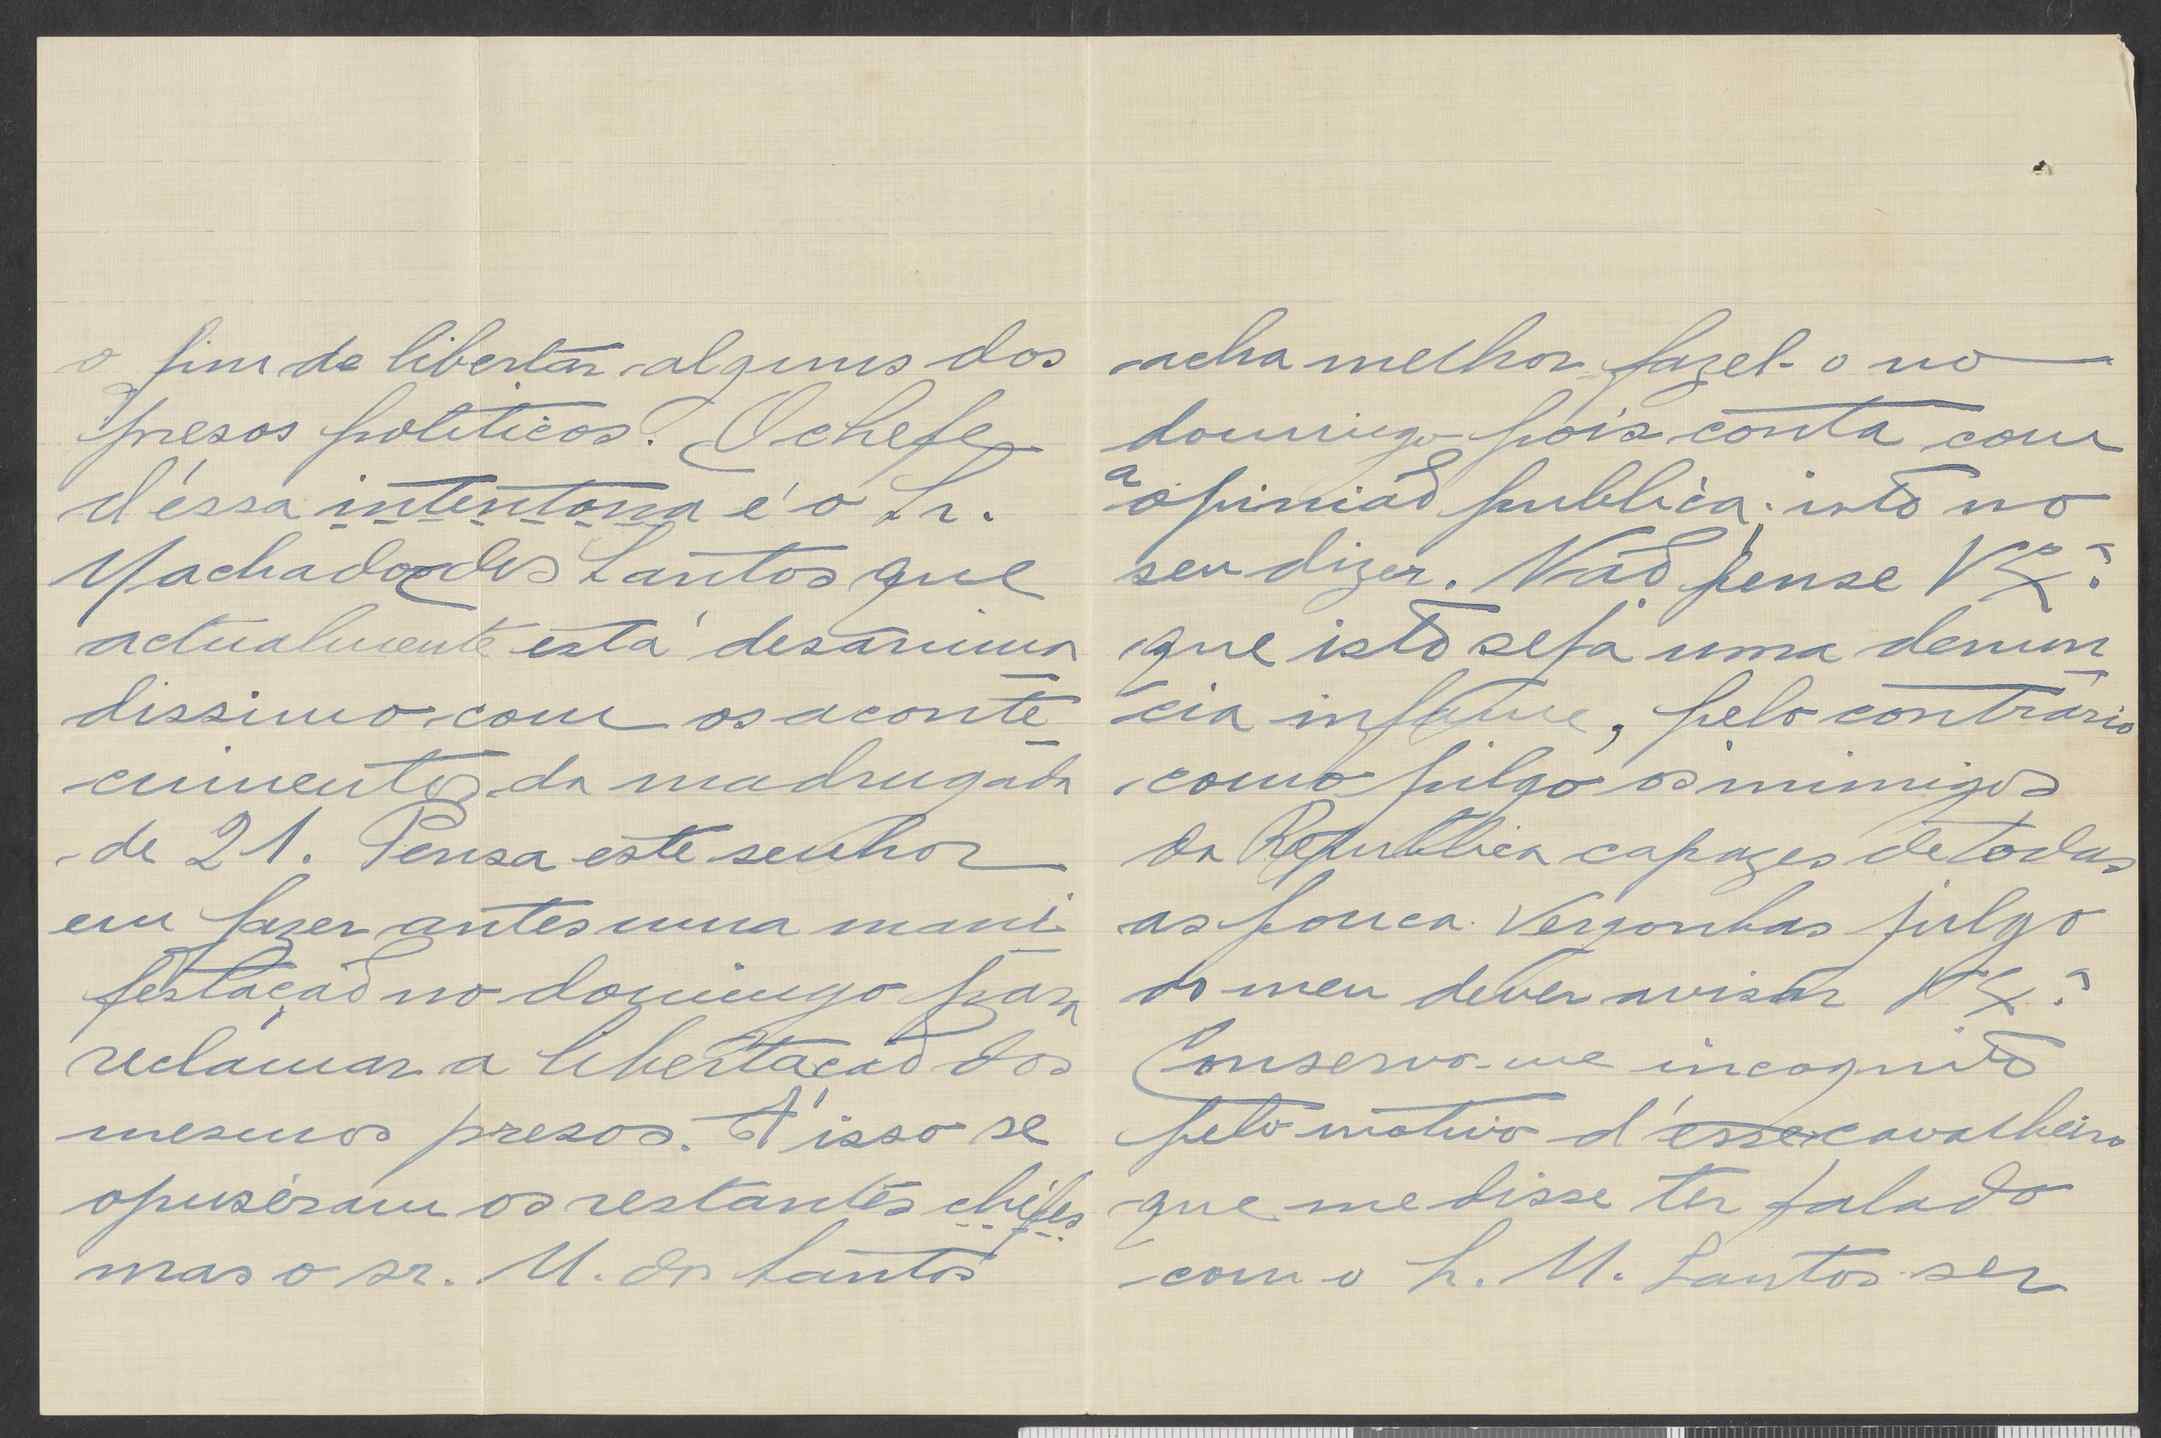 o fim de libertar alguns dos
presos politicos. O chefe
d'éssa intentona é o Sr.
Machado dos Santos que
actualmente está desanima
dissimo com os aconte
cimentos da madrugada
de 21. Pensa este senhor
em fazer antes uma mani
festação no domingo para
reclamar a libertação dos
mesmos presos. A' isso se
opuséram os restantes chéfes
mas o sr. M. dos Santos
acha melhor fazel-o no
domingo pois conta com
a opinião publica; isto no
seu dizer. Não pense V Ex.ª
que isto seja uma denun
cia infame, pelo contrário
como julgo os inimigos
da Republica capazes de todas
as pouca vergonhas julgo
do meu dever avisar V Ex.ª
Conservo-me incognito
pelo motivo d'esse cavalheiro
que me disse ter falado
com o Sr. M. Santos ser